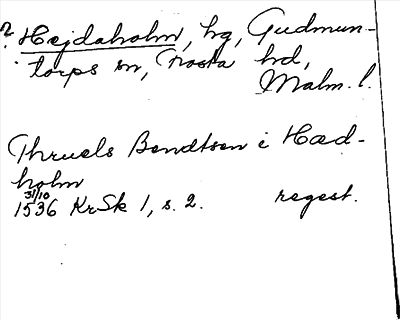 ? Hejdaholm, hg, Gudmun-
torps sn, Frosta hd,
Malm. l.
Thruels Bendtsen i Had-
holm
31/10
1536 KrSk 1, s. 2. regest.